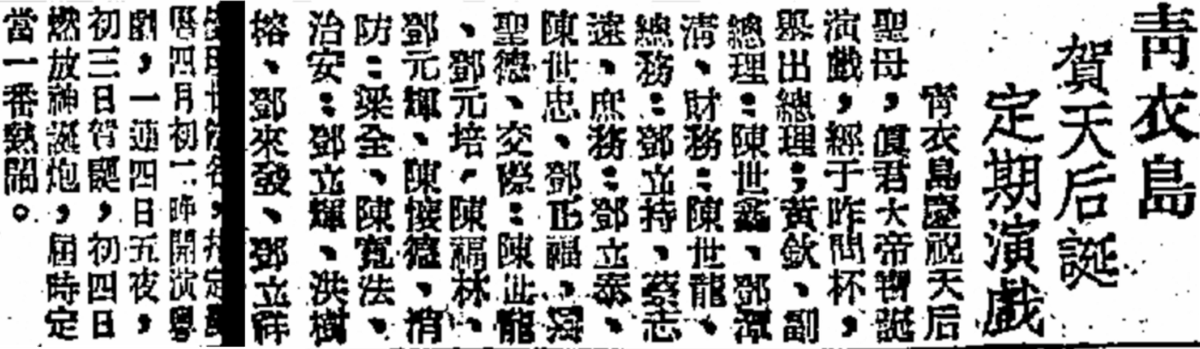 青衣島
賀天后誕
定期演戲
青衣島慶祝天后
聖母，真君大帝寶誕
演戲，經于昨問杯，
舉出總理：黃欽、副
總理：陳世鑫、鄧潭
淸、財務：陳世龍、
總務：鄧立持、蔡志
遠、庶務：鄧立泰、
陳世忠、鄧正福、
聖德、交際：陳世龍
、鄧元培、陳福林、
鄧元輝、陳懷德、消
防：梁全、陳寬法、
治安：鄧立輝、洪樹
榕、鄧來發、鄧立祥
曆四月初二晚開演粵
劇，一連四日五夜，
初三日賀誕，初四日
燃放神誕炮，屆時定
當一番熱鬧。